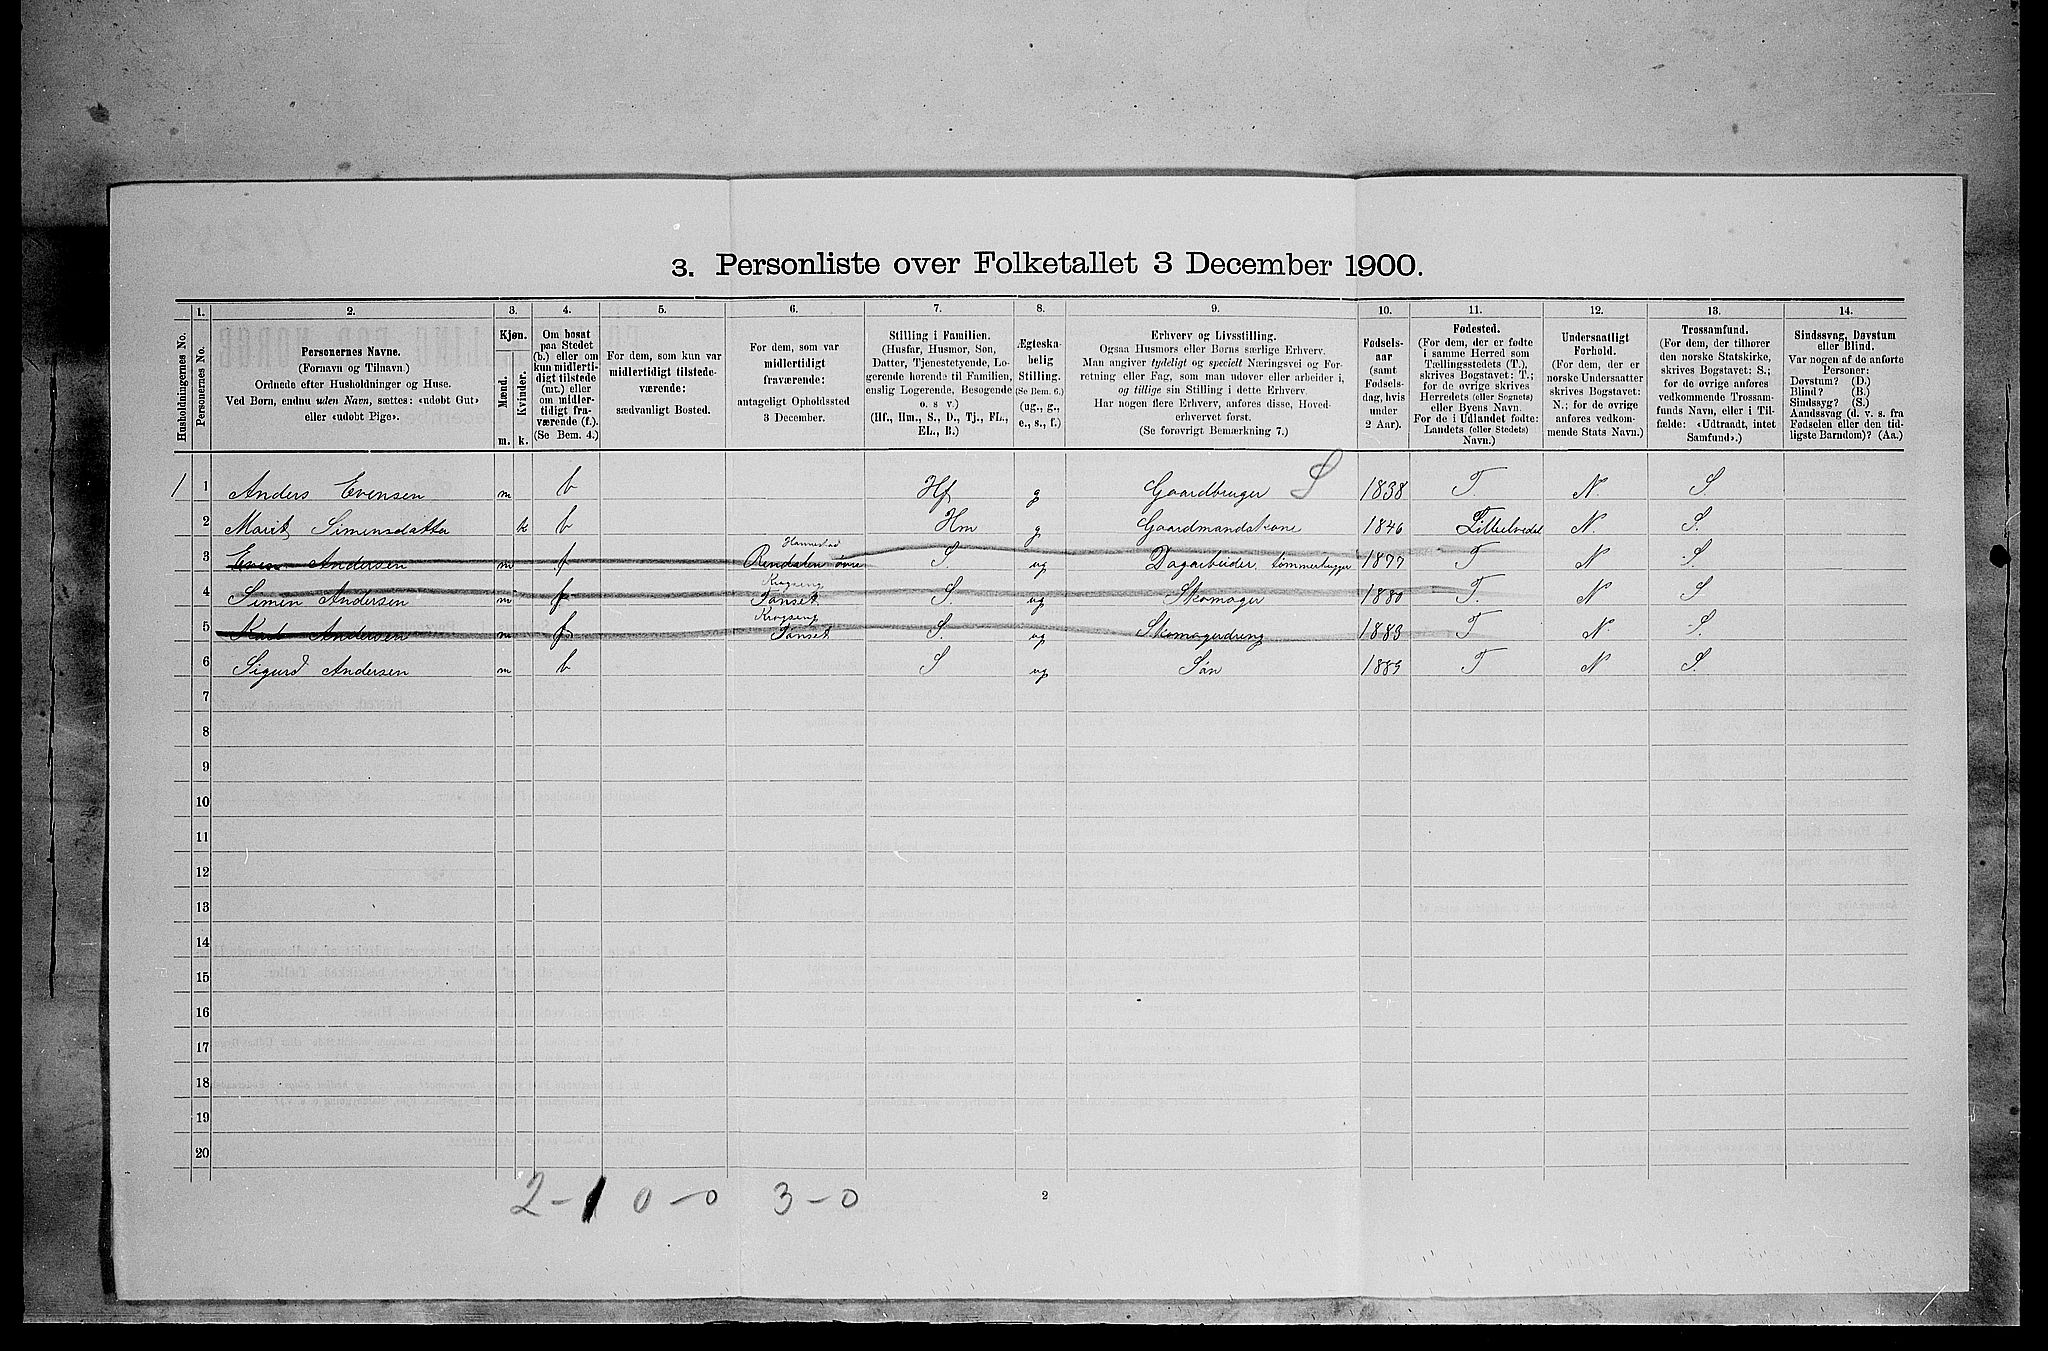 3. Personliste over Folketallet 3 December 1900.
Husholdningernes No.
1.
Personernes No.
2.
Personernes Navne.
(Fornavn og Tilnavn.)
Ordnede efter Husholdninger og Huse.
Ved Børn, endnu uden Navn, sættes: «udøbt Gut»
eller «udøbt Pige».
3.
Kjøn.
Mænd.
Kvinder.
m. k.
4.
Om bosat
paa Stedet
(b.) eller om
kun midlerti-
digt tilstede
(mt.) eller
om midler-
tidigt fra-
værende (f.).
(Se Bem. 4.)
5.
For dem, som kun var
midlertidigt tilstede-
værende:
sædvanligt Bosted.
6.
For dem, som var
midlertidigt
fraværende:
antageligt Opholdssted
3 December.
7.
Stilling i Familien.
(Husfar, Husmor, Søn,
Datter, Tjenestetyende, Lo-
gerende hørende til Familien,
enslig Logerende, Besøgende
o. s. v.)
(Hf., Hm., S., D., Tj., FL.,
EL., B.)
8.
Ægteska-
belig
Stilling.
(Se Bem. 6.)
(ug., g.,
e., s., f.)
9.
Erhverv og Livsstilling.
Ogsaa Husmors eller Børns særlige Erhverv.
Man angiver tydeligt og specielt Næringsvei og For-
retning eller Fag, som man udøver eller arbeider i,
og tillige sin Stilling i dette Erhverv.
Har nogen flere Erhverv, anføres disse, Hoved-
erhvervet først.
(Se forøvrigt Bemærkning 7.)
10.
Fødsels-
aar
(samt
Fødsels-
dag, hvis
under
2 Aar).
11.
Fødested.
(For dem, der er fødte
i samme Herred som
Tællingsstedets (T.),
skrives Bogstavet: T.;
for de øvrige skrives
Herredets (eller Sognets)
eller Byens Navn.
For de i Udlandet fødte:
Landets (eller Stedets)
Navn.)
12.
Undersaatligt
Forhold.
(For dem, der er
norske Undersaatter
skrives Bogstavet:
N.; for de øvrige
anføres vedkom-
mende Stats Navn.)
13.
Trossamfund.
(For dem, der tilhører
den norske Statskirke,
skrives Bogstavet: S.;
for de øvrige anføres
vedkommende Trossam-
funds Navn, eller i Til-
fælde: «Udtraadt, intet
Samfund».)
14.
Sindssvag, Døvstum
eller Blind.
Var nogen af de anførte
Personer:
Døvstum? (D.)
Blind? (B.)
Sindssyg? (S.)
Aandssvag (d. v. s. fra
Fødselen eller den tid-
ligste Barndom)? (Aa.)
1 1 Anders Evensen m b Hf g Gaardbruger S 1838 T. N. S.
2 Marit Simensdatter k b Hm g Gaardmandskone 1846 N. S.
3 Even Andersen m f Rendalen øvre S ug Dagarbeider, tømmerhugger 1877 T N S
4 Simen Andersen m f Tønset S. ug Skomager 1880 T. N S
5 Andersen m f Tønset S. ug Skomagerdreng 1883 T N. S.
6 Sigurd Andersen m b S ug Søn 1889 T N S.
7
8
9
10
11
12
13
14
15
16
17
18
19
20
2-1 0-0 3-0
2